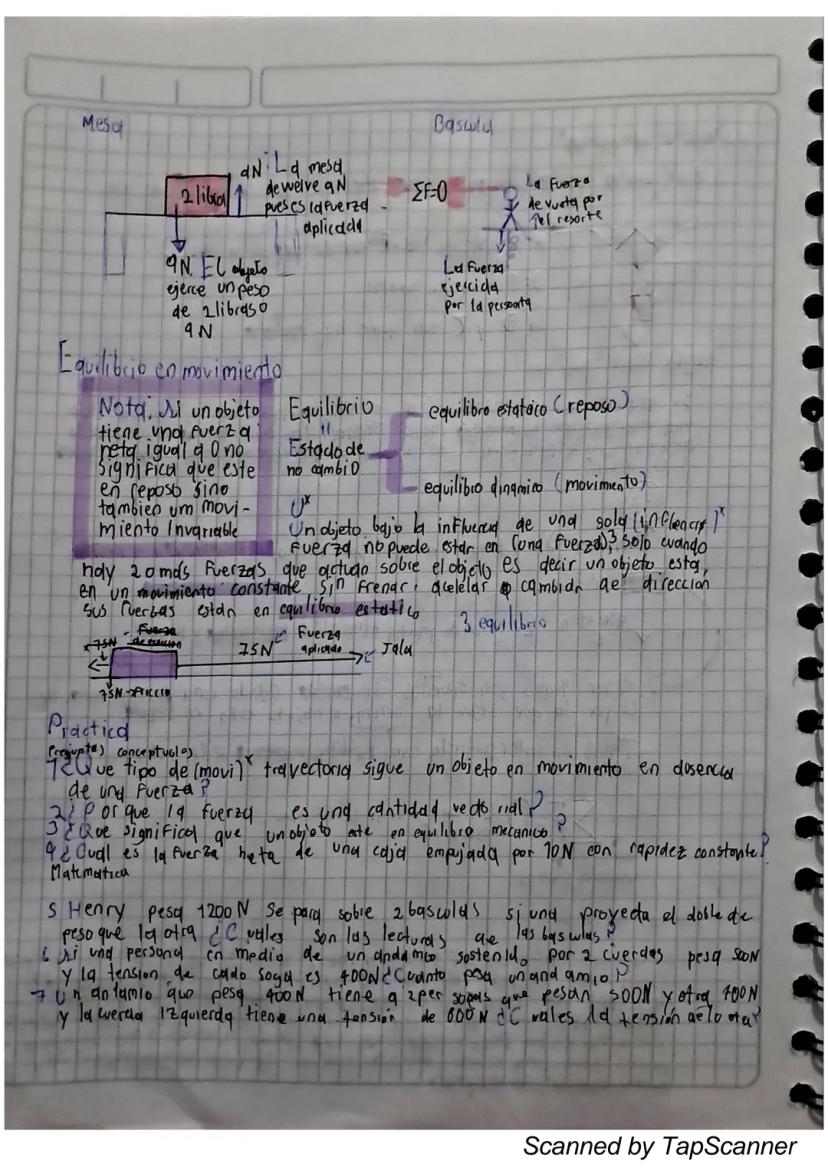 Mesa
Bascula
2 libra
9N
La mesa
devuelve 9N
pues es la fuerza
aplicada
ΣF=0
La fuerza
devuelta por
el resorte
9N. El objeto
ejerce un peso
de 2 libras o
9N
La fuerza
ejercida
por la persona
Equilibrio en movimiento
Nota: si un objeto
tiene una fuerza
neta igual a 0 no
significa que este
en reposo sino
tambien um movi-
miento Invariable
Equilibrio
=
Estado de
no cambio
equilibro estatico (reposo)
equilibrio dinamico (movimiento)
Un objeto bajo la influencia de una sola
fuerza no puede estar en (una fuerza)³ solo cuando
hay 2 o más fuerzas que actuan sobre el objeto es decir un objeto esta,
en un movimiento constante sin frenar, acelelar o cambiar de dirección
sus fuerzas están en equilibrio estatico
3 equilibrio
75N
Fuerza
75N
Fuerza
aplicada
Jala
75N
Practica
conceptuales
1 ¿Que tipo de (movi)* trayectoria sigue un objeto en movimiento en ausencia
de una fuerza?
2 ¿Por que la fuerza es una cantidad vectorial?
3 ¿Que significa que un objeto este en equilibro mecanico?
4 ¿Cual es la fuerza neta de una caja empujada por 10N con rapidez constante?
Matematica
5 Henry pesa 1200 N Se para sobre 2 basculas si una proyecta el doble de
peso que la otra ¿Cuales son las lecturas de las basculas?
6 si una persona en medio de un andamio sostenido por 2 cuerdas pesa 500N
y la tension de cada soga es 400N ¿Cuanto pesa un andamio?
7 Un andamio que pesa 400N tiene a 2 personas que pesan 500N y otra 400N
y la cuerda Izquierda tiene una tensión de 800N ¿Cual es la tensión de la otra?
Scanned by TapScanner